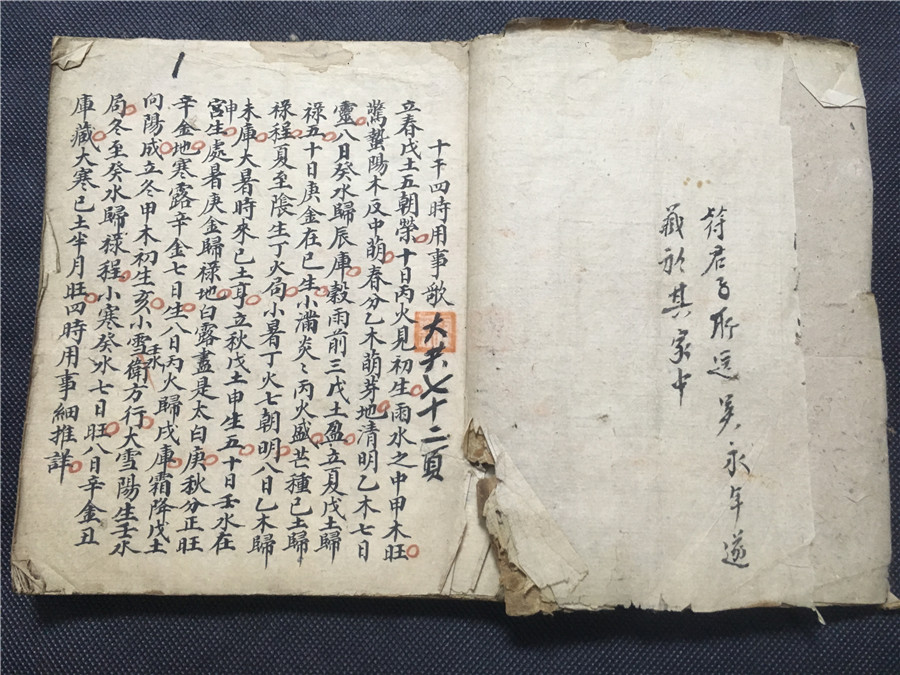 符君子所送吳永年遂
藏於其家中
十干四時用事歌 大共七十二頁
立春戊土五朝榮十日丙火見初生雨水之中甲木旺
驚蟄陽木反申萌春分乙木萌芽地清明乙木七日
靈八日癸水歸辰庫穀雨前三戊土盈立夏戊土歸
祿五十日庚金在巳生小滿炎〻丙火盛芒種己土歸
祿程夏至陰生丁火旬小暑丁火七朝明八日乙木歸
未庫大暑時來己土亨立秋戊土申生五十日壬水在
申宮生處暑庚金歸祿地白露盡是太白庚秋分正旺
辛金地寒露辛金七日生八日丙火歸戌庫霜降戊土
向陽成立冬甲木初生亥小雪壬水衛方行大雪陽生壬水
局冬至癸水歸祿程小寒癸水七日旺八日辛金丑
庫藏大寒己土半月旺四時用事細推詳
1